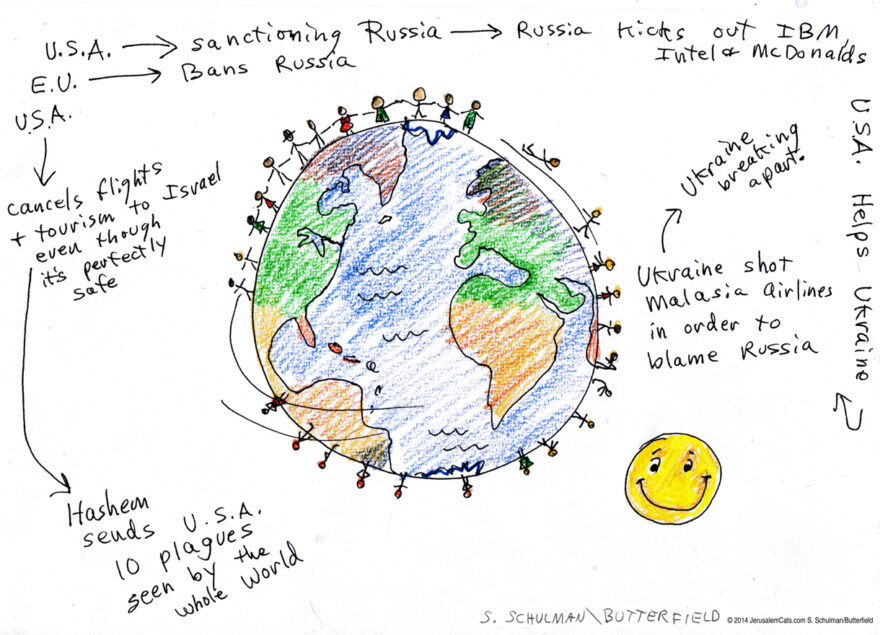 U.S.A. → sanctioning Russia → Russia kicks out IBM,
Intel & McDonalds
E.U. → Bans Russia
USA
cancels flights
+ tourism to Israel
even though
it's perfectly
safe
Hashem
sends U.S.A.
10 plagues
seen by the
whole World
U.S.A. Helps Ukraine
Ukraine shot
Malasia Airlines
in order to
blame Russia
Ukraine
breaking
apart.
S. SCHULMAN\BUTTERFIELD
© 2014 JerusalemCats.com S. Schulman/Butterfield